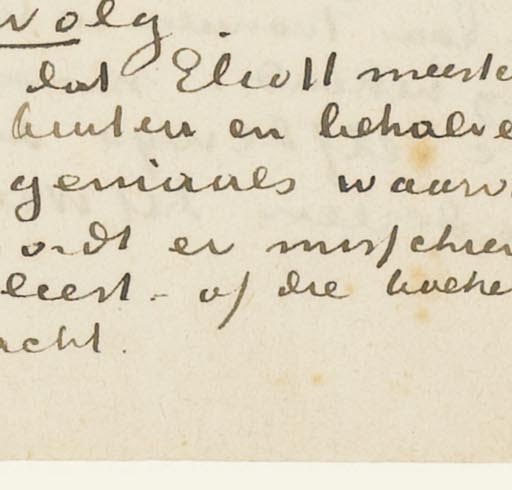 volg.
dat Eliott meester
buiten en behalve
geniaals waarv
ordt er misschien
leest - of die boeke
acht.